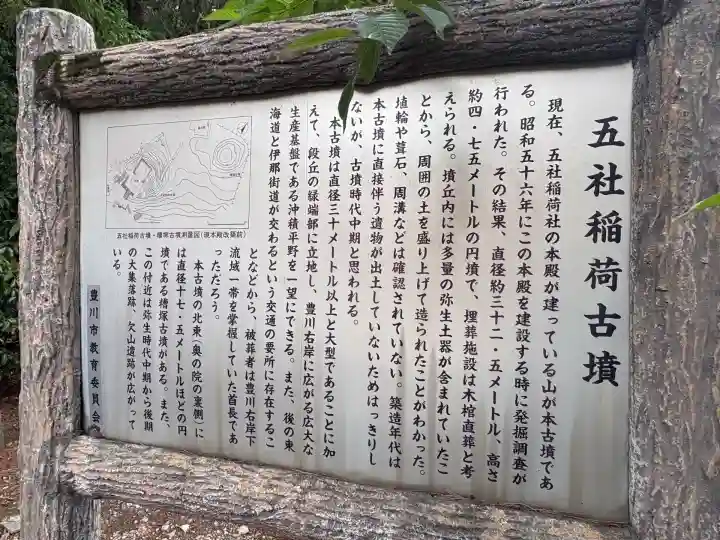 五社稲荷古墳
現在、五社稲荷社の本殿が建っている山が本古墳であ
る。昭和五十六年にこの本殿を建設する時に発掘調査が
行われた。その結果、直径約三十二・五メートル、高さ
約四・七五メートルの円墳で、埋葬施設は木棺直葬と考
えられる。墳丘内には多量の弥生土器が含まれていたこ
とから、周囲の土を盛り上げて造られたことがわかった。
埴輪や葺石、周溝などは確認されていない。築造年代は
本古墳に直接伴う遺物が出土していないためはっきりし
ないが、古墳時代中期と思われる。
本古墳は直径三十メートル以上と大型であることに加
えて、段丘の縁端部に立地し、豊川右岸に広がる広大な
生産基盤である沖積平野を一望にできる。また、後の東
海道と伊那街道が交わるという交通の要所に存在するこ
となどから、被葬者は豊川右岸下
流域一帯を掌握していた首長であ
っただろう。
本古墳の北東（奥の院の裏側）に
は直径十七・五メートルほどの円
墳である糟塚古墳がある。また、
この付近は弥生時代中期から後期
の大集落跡、欠山遺跡が広がって
いる。
五社稲荷古墳・糟塚古墳測量図（現本殿改築前）
豊川市教育委員会